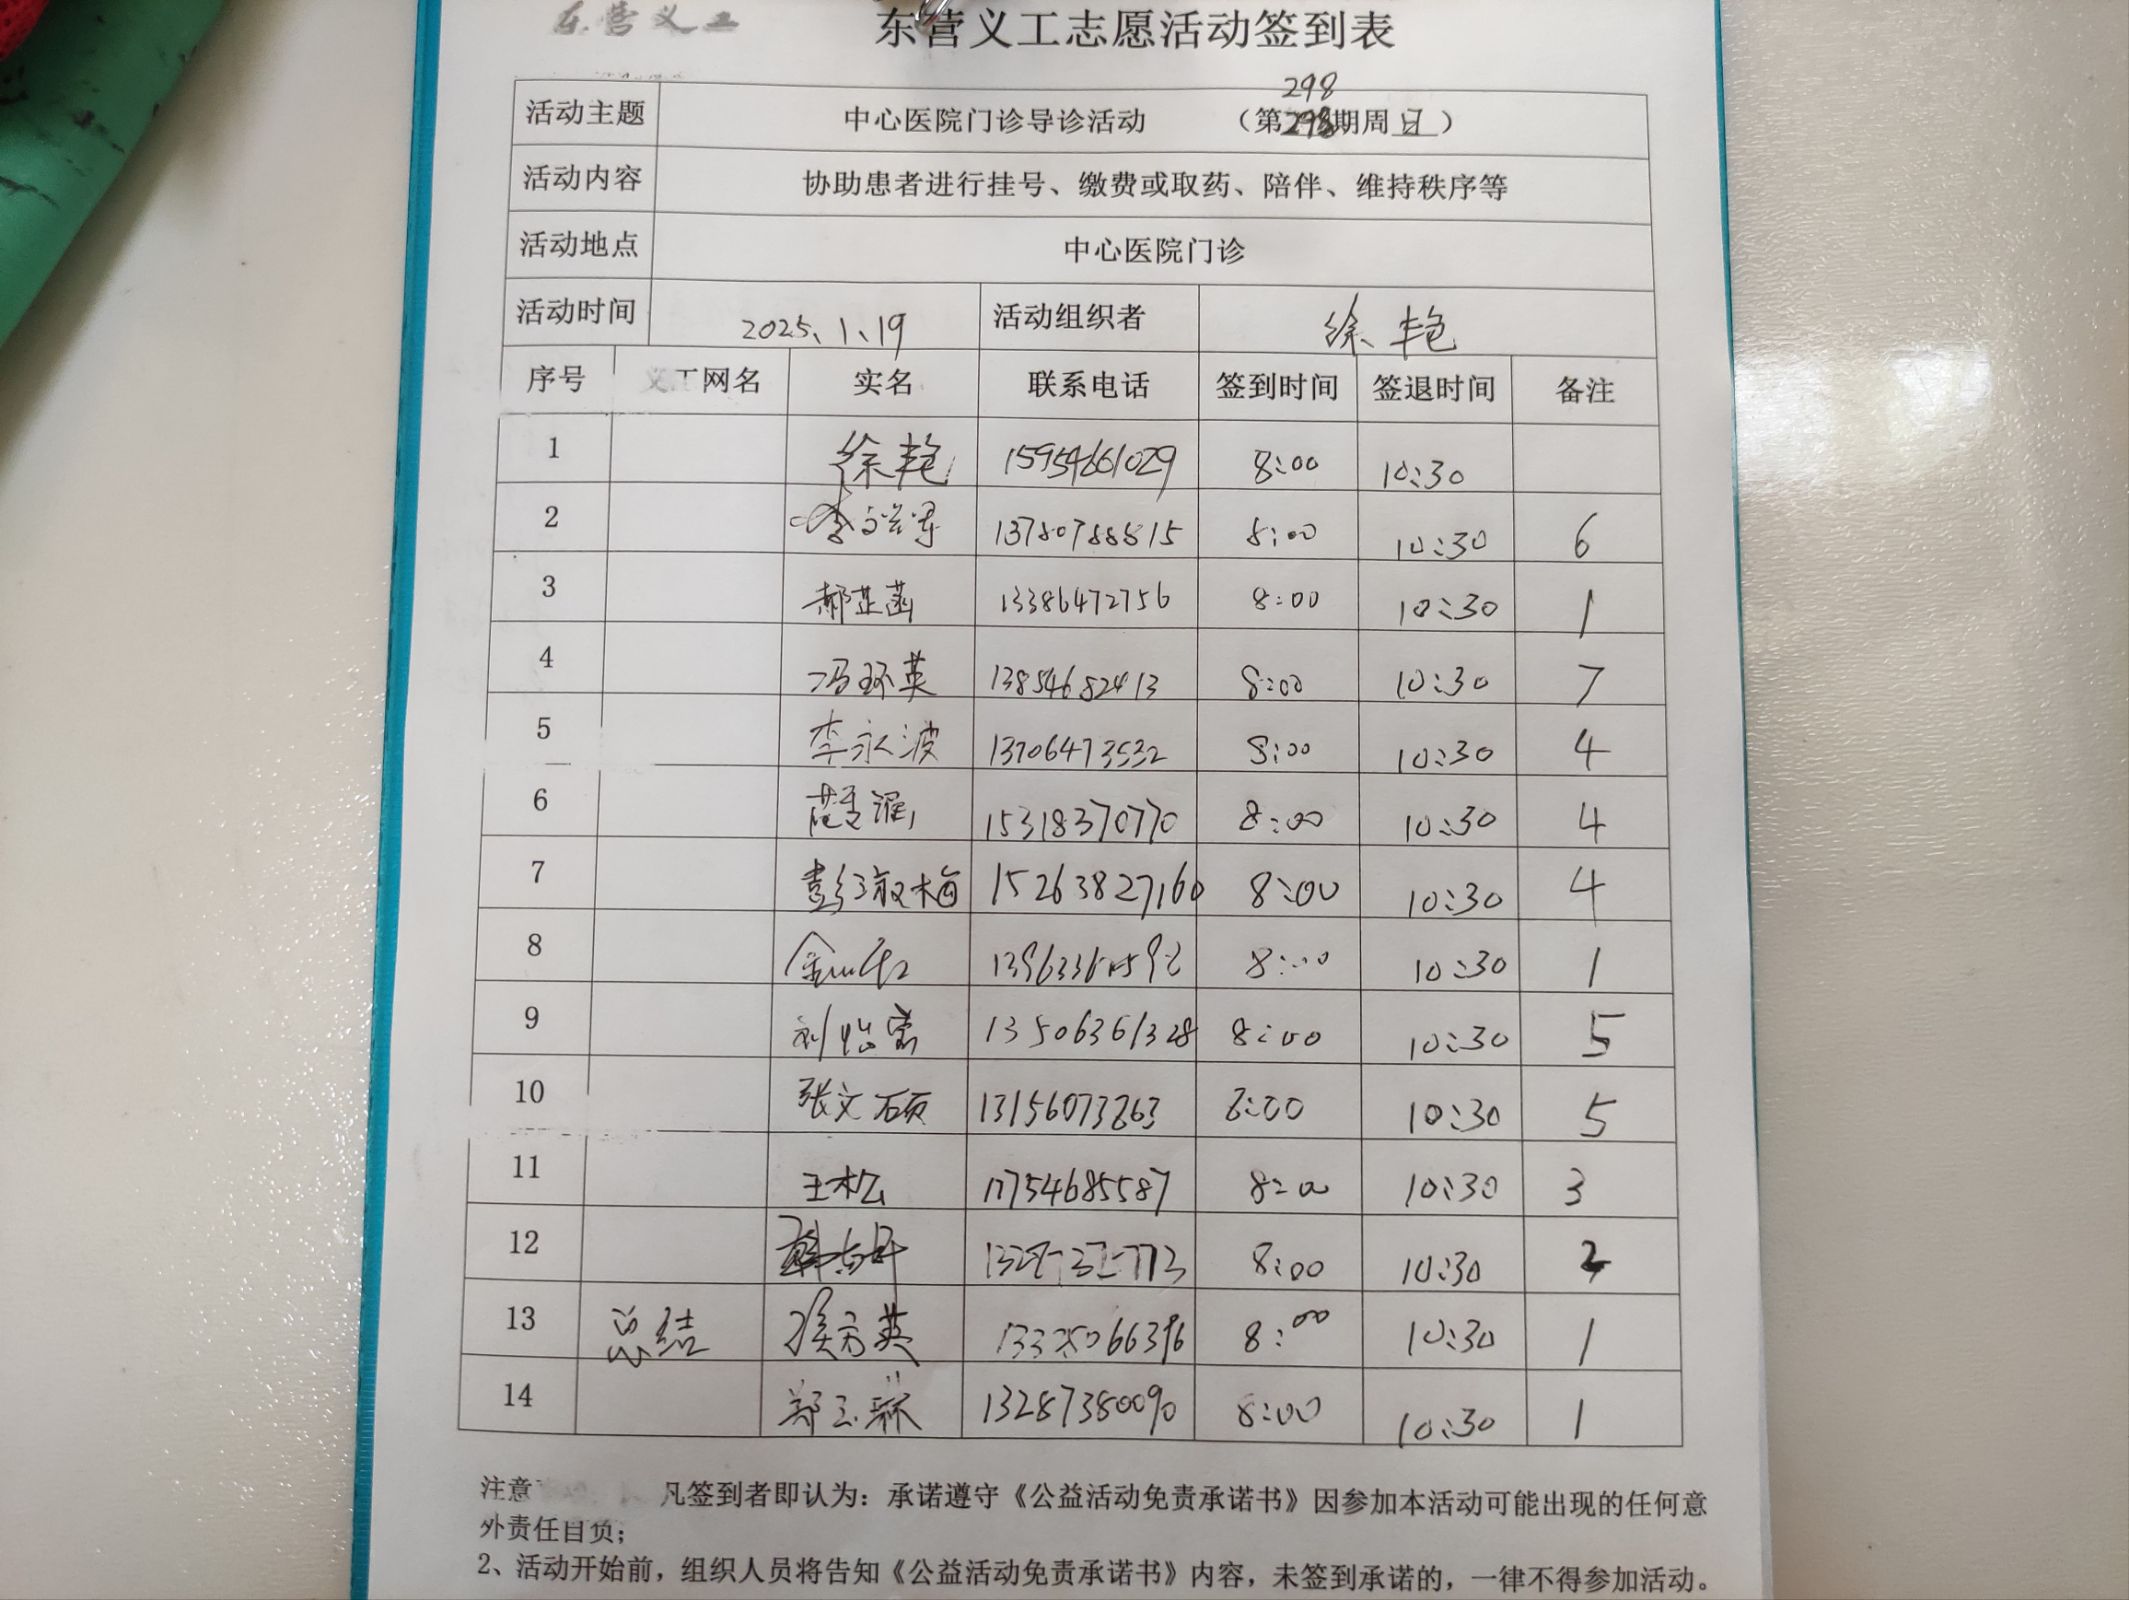 东营义工
东营义工志愿活动签到表
298
活动主题 中心医院门诊导诊活动 （第298期周日）
活动内容 协助患者进行挂号、缴费或取药、陪伴、维持秩序等
活动地点 中心医院门诊
活动时间 2025、1、19 活动组织者 徐艳
序号 义工网名 实名 联系电话 签到时间 签退时间 备注
1 徐艳 15954661029 8:00 10:30
2 13780788815 8:00 10:30 6
3 郝芷菡 13386472756 8:00 10:30 1
4 冯环英 13854682413 8:00 10:30 7
5 李永波 13706473532 8:00 10:30 4
6 15318370770 8:00 10:30 4
7 彭敏梅 15263827160 8:00 10:30 4
8 8:00 10:30 1
9 刘怡 13506361328 8:00 10:30 5
10 张文硕 13156073263 8:00 10:30 5
11 王松 17754685587 8:00 10:30 3
12 8:00 10:30 2
13 总结 侯方英 8:00 10:30 1
14 郑玉 13287380090 8:00 10:30 1
注意 凡签到者即认为：承诺遵守《公益活动免责承诺书》因参加本活动可能出现的任何意
外责任自负；
2、活动开始前，组织人员将告知《公益活动免责承诺书》内容，未签到承诺的，一律不得参加活动。